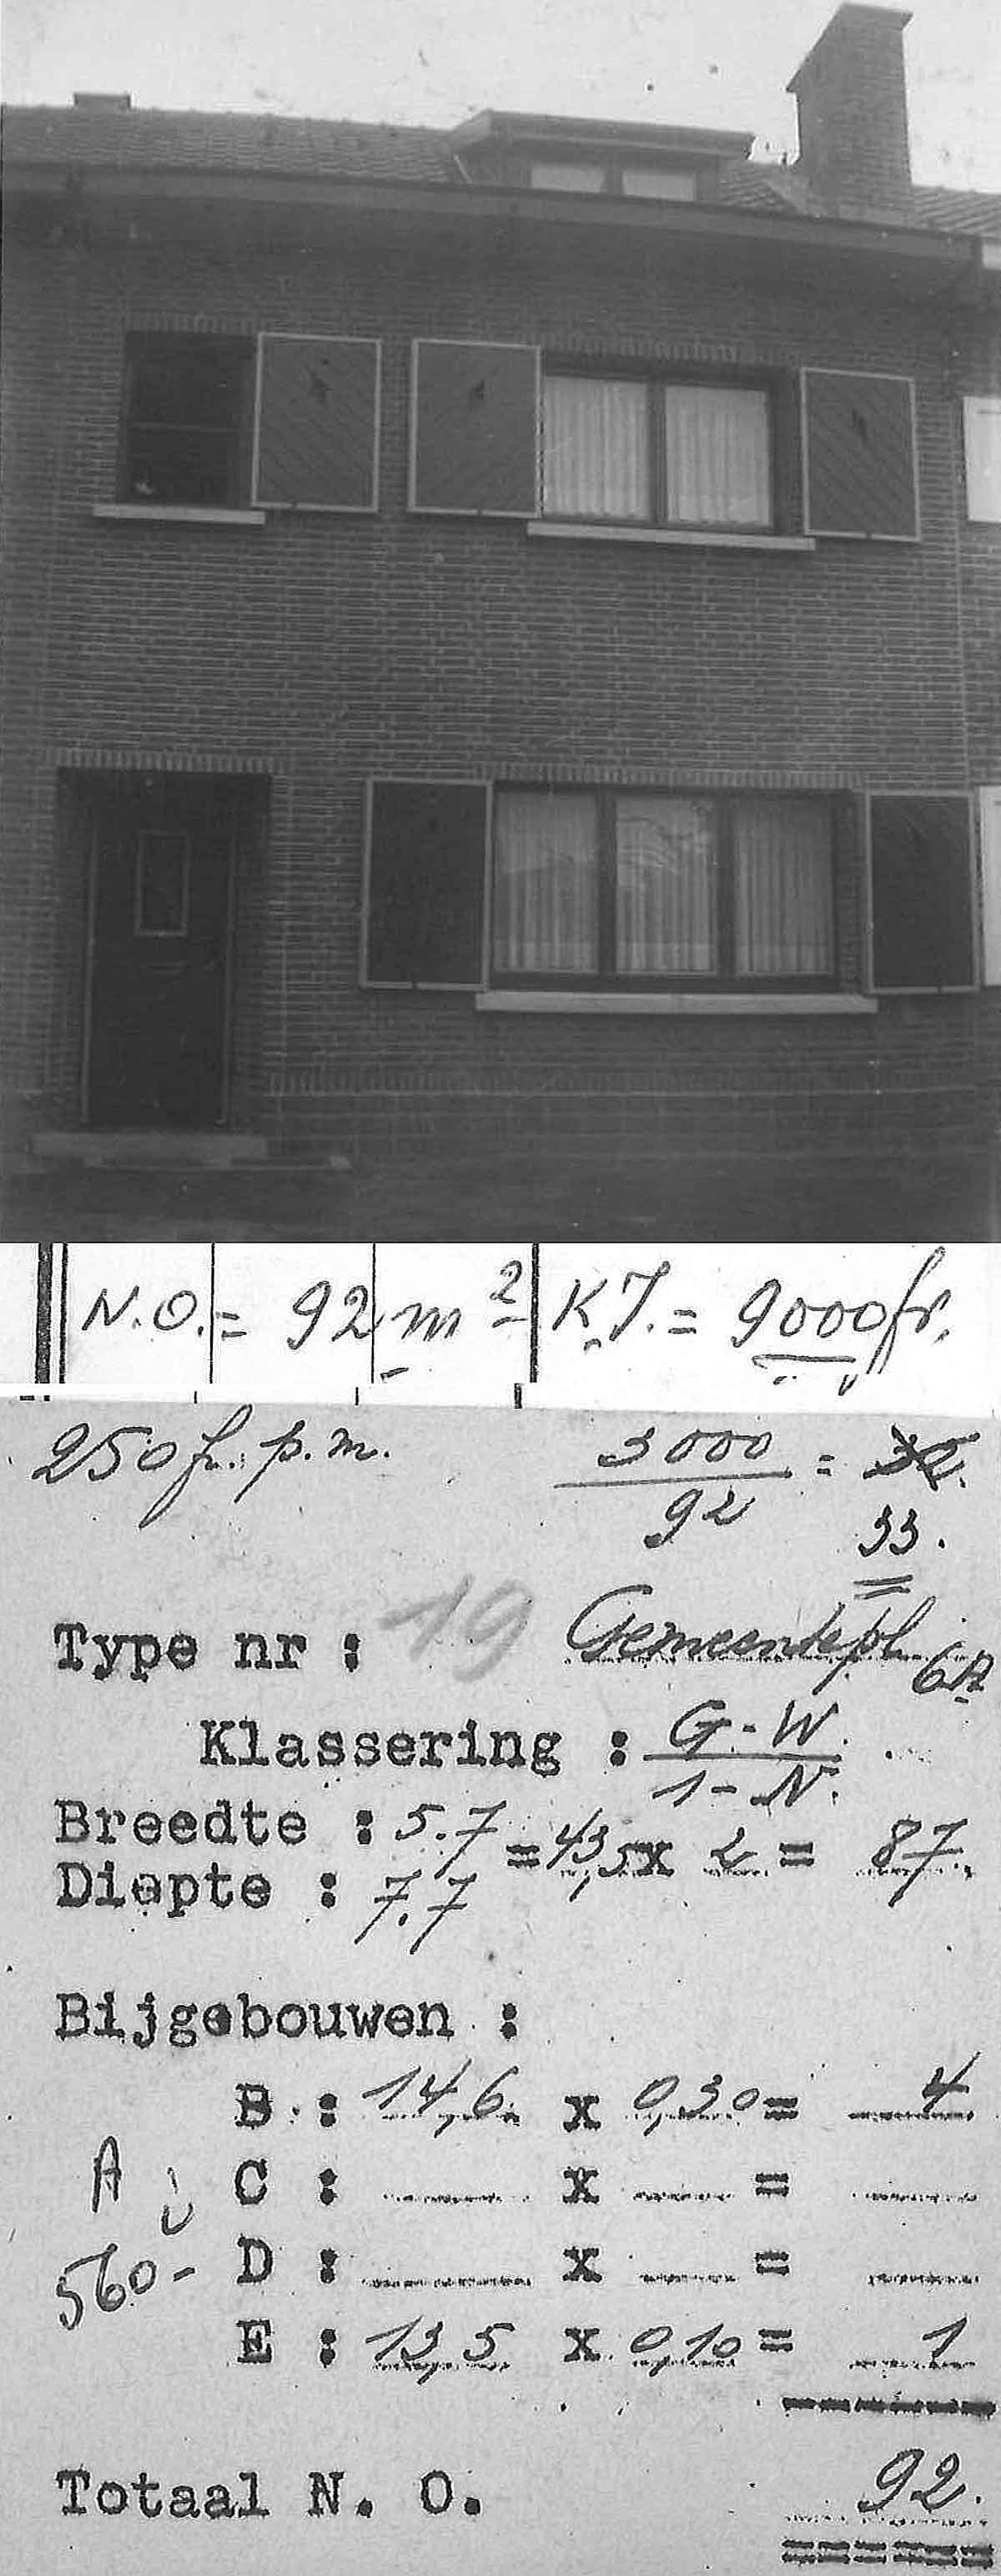 N.O. = 92 m² K.I. = 9000 fr.
250 fr. p.m.
3000 / 92 = 32.
33.
Type nr : 19 Gemeentepl 6A
Klassering : G-W. / 1-N.
Breedte : 5.7 = 43,5 x 2 = 87
Diepte : 7.7
Bijgebouwen :
B : 14,6 x 0,30 = 4
A C : x =
560- D : x =
E : 13,5 x 0,10 = 1
Totaal N. O. 92.